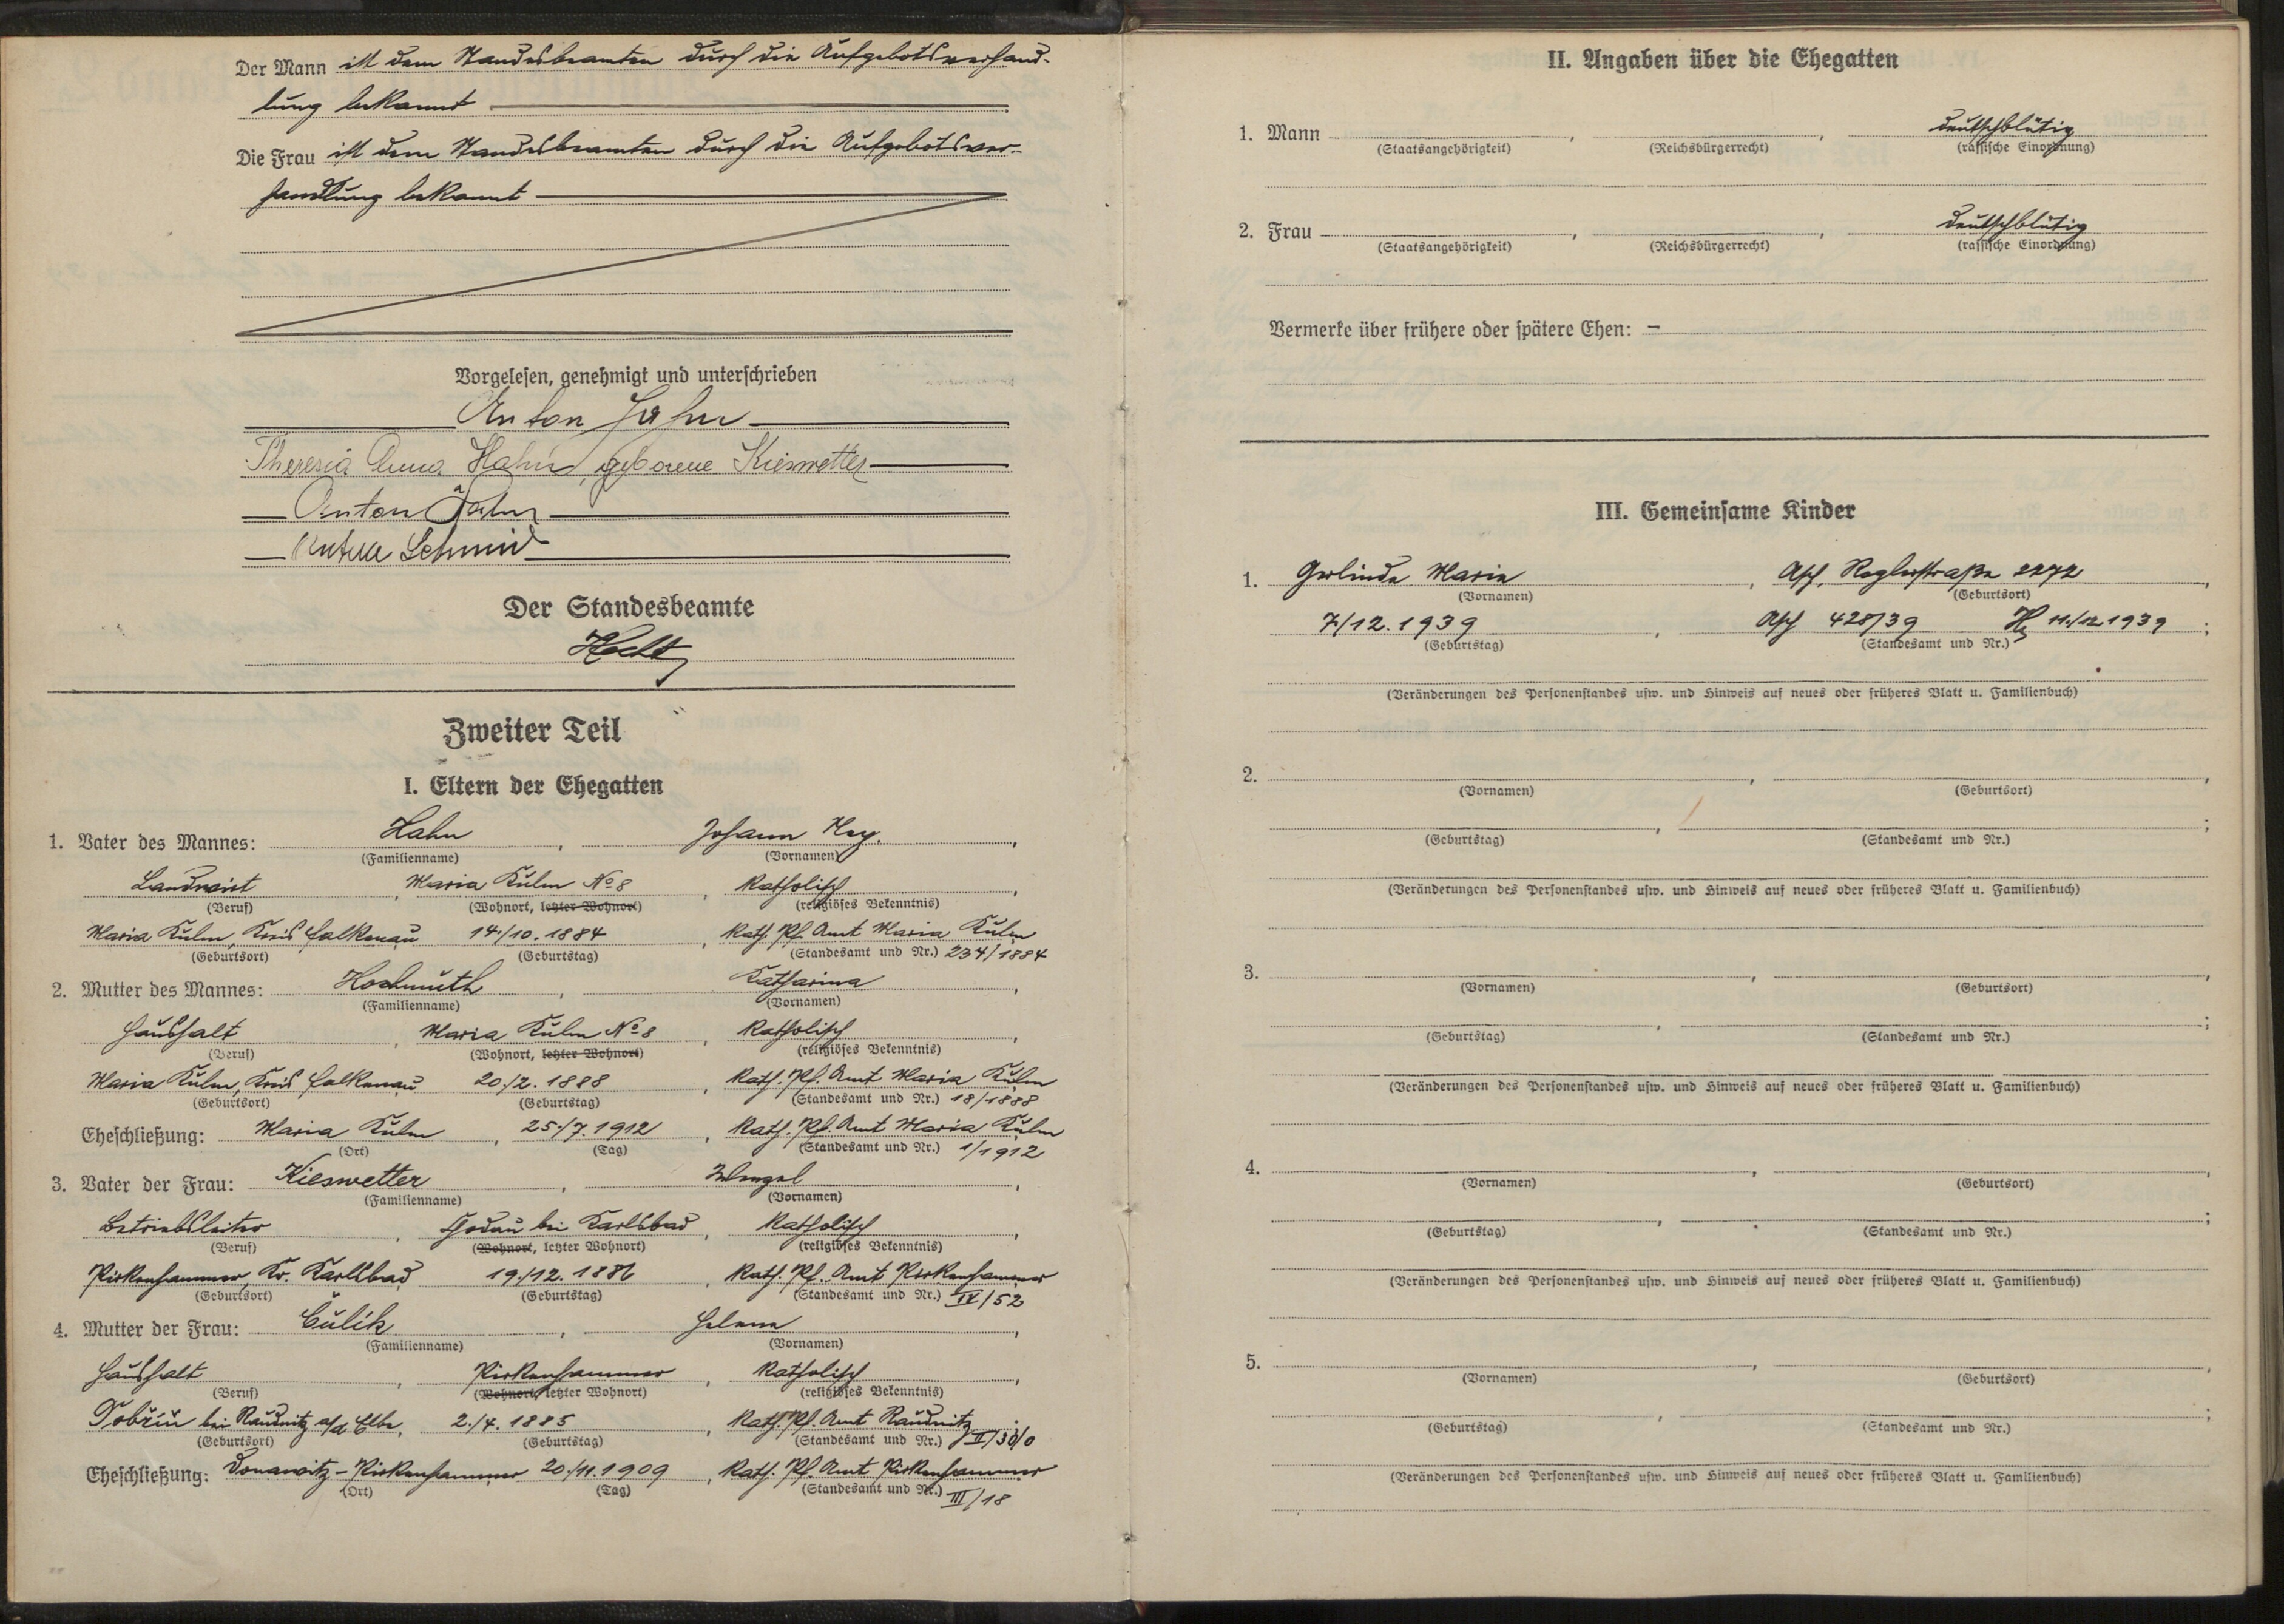 Der Mann ist dem Standesbeamten durch die Aufgebotsverhand-
lung bekannt
Die Frau ist dem Standesbeamten durch die Aufgebotsver-
handlung bekannt
Vorgelesen, genehmigt und unterschrieben
Anton Hahn
Theresia Anna Hahn, geborene Kieswetter
Anton
Schmid
Der Standesbeamte
Zweiter Teil
I. Eltern der Ehegatten
1. Vater des Mannes: Hahn, Johann,
(Familienname) (Vornamen)
Landwirt, Maria Kulm No 8, katholisch,
(Beruf) (Wohnort, letzter Wohnort) (religiöses Bekenntnis)
Maria Kulm, Kreis Falkenau 14/10.1884, Kath. Pf. Amt Maria Kulm
(Geburtsort) (Geburtstag) (Standesamt und Nr.) 234/1884
2. Mutter des Mannes: Hochmuth, Katharina,
(Familienname) (Vornamen)
Haushalt, Maria Kulm No 8, katholisch,
(Beruf) (Wohnort, letzter Wohnort) (religiöses Bekenntnis)
Maria Kulm, Kreis Falkenau 20./2. 1888, Kath. Pf. Amt Maria Kulm
(Geburtsort) (Geburtstag) (Standesamt und Nr.) 18/1888
Eheschließung: Maria Kulm, 25./7. 1912, Kath. Pf. Amt Maria Kulm
(Ort) (Tag) (Standesamt und Nr.) 1/1912
3. Vater der Frau: Kieswetter, Wenzel,
(Familienname) (Vornamen)
Betriebsleiter, bei Karlsbad, katholisch,
(Beruf) (Wohnort, letzter Wohnort) (religiöses Bekenntnis)
Pirkenhammer, Kr. Karlsbad 19./12. 1886, Kath. Pf. Amt Pirkenhammer
(Geburtsort) (Geburtstag) (Standesamt und Nr.) IV/52
4. Mutter der Frau: Čulik, Helena,
(Familienname) (Vornamen)
Haushalt, Pirkenhammer, katholisch,
(Beruf) (Wohnort, letzter Wohnort) (religiöses Bekenntnis)
bei Raudnitz a/d Elbe, 2./4. 1885, Kath. Pf. Amt Raudnitz
(Geburtsort) (Geburtstag) (Standesamt und Nr.)
Eheschließung: Donawitz-Pirkenhammer 20./11. 1909, Kath. Pf. Amt Pirkenhammer
(Ort) (Tag) (Standesamt und Nr.) III/18
II. Angaben über die Ehegatten
1. Mann, , deutschblütig
(Staatsangehörigkeit) (Reichsbürgerrecht) (rassische Einordnung)
2. Frau, , deutschblütig
(Staatsangehörigkeit) (Reichsbürgerrecht) (rassische Einordnung)
Vermerke über frühere oder spätere Ehen: –
III. Gemeinsame Kinder
1. Gerlinde Maria, Asch, Roglerstraße 2272,
(Vornamen) (Geburtsort)
7/12. 1939, Asch 428/39 11./12 1939;
(Geburtstag) (Standesamt und Nr.)
(Veränderungen des Personenstandes usw. und Hinweis auf neues oder früheres Blatt u. Familienbuch)
2. , ,
(Vornamen) (Geburtsort)
, ;
(Geburtstag) (Standesamt und Nr.)
(Veränderungen des Personenstandes usw. und Hinweis auf neues oder früheres Blatt u. Familienbuch)
3. , ,
(Vornamen) (Geburtsort)
, ;
(Geburtstag) (Standesamt und Nr.)
(Veränderungen des Personenstandes usw. und Hinweis auf neues oder früheres Blatt u. Familienbuch)
4. , ,
(Vornamen) (Geburtsort)
, ;
(Geburtstag) (Standesamt und Nr.)
(Veränderungen des Personenstandes usw. und Hinweis auf neues oder früheres Blatt u. Familienbuch)
5. , ,
(Vornamen) (Geburtsort)
, ;
(Geburtstag) (Standesamt und Nr.)
(Veränderungen des Personenstandes usw. und Hinweis auf neues oder früheres Blatt u. Familienbuch)